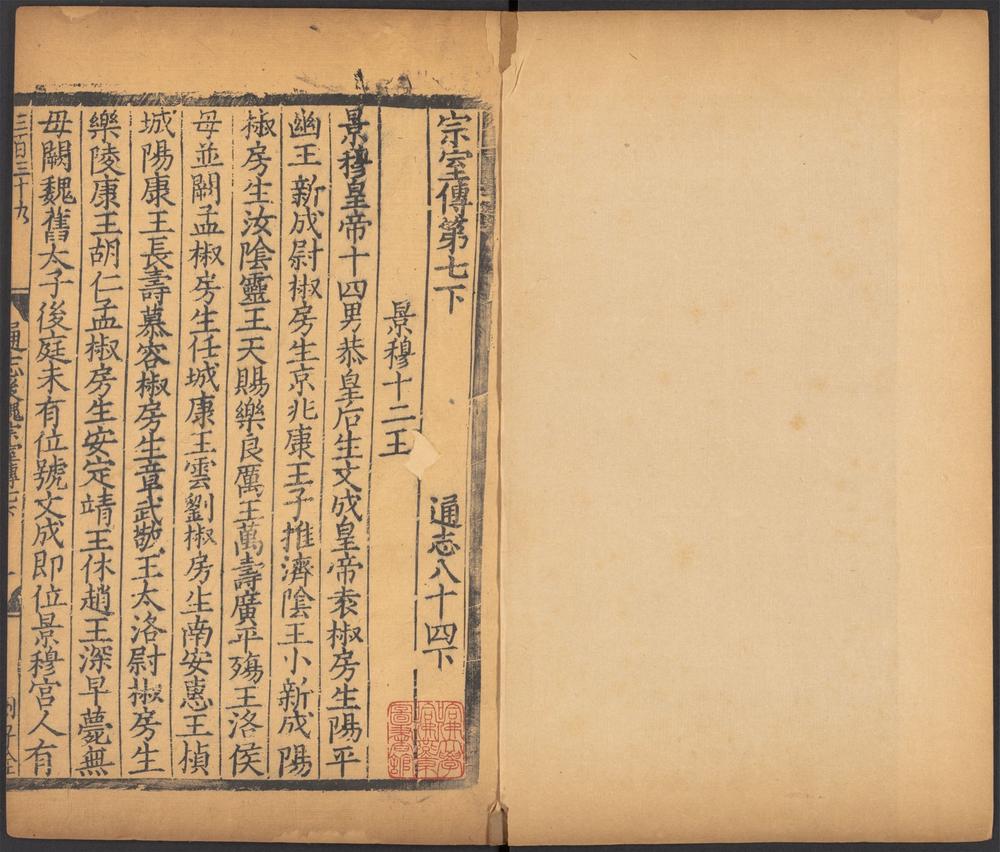 宗室傳第七下 通志八十四下
景穆十二王
景穆皇帝十四男恭皇后生文成皇帝袁椒房生陽平
幽王新成尉椒房生京兆康王子推濟陰王小新成陽
椒房生汝陰靈王天賜樂良厲王萬壽廣平殤王洛侯
母並闕孟椒房生任城康王雲劉椒房生南安惠王楨
城陽康王長壽慕容椒房生章武敬王太洛尉椒房生
樂陵康王胡仁孟椒房生安定靖王休趙王深早薨無
母闕魏舊太子後庭未有位號文成即位景穆宮人有
三百三十九
哈佛大學哈佛燕京圖書館